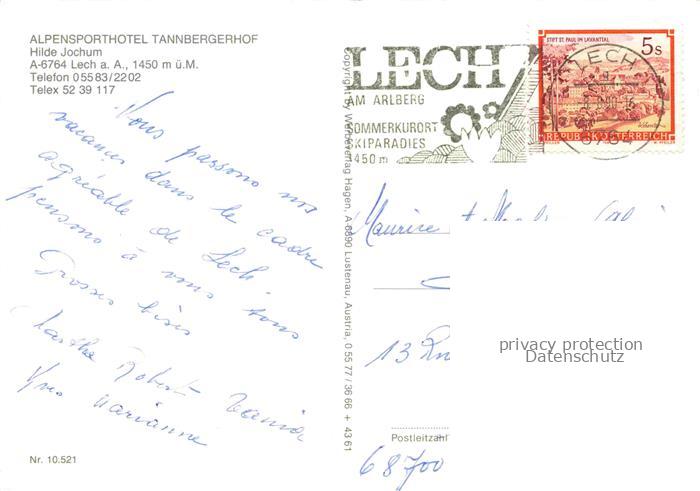 ALPENSPORTHOTEL TANNBERGERHOF
Hilde Jochum
A-6764 Lech a. A., 1450 m ü.M.
Telefon 05583/2202
Telex 52 39 117
Vous passons nos
vacances dans le cadre
agréable de Lech.
pensons à vous tous
Grosses bises
Martha Robert
Yves Marianne
Nr. 10.521
Copyright by Werbeverlag Hagen, A-6890 Lustenau, Austria, 0 55 77 / 36 66 + 43 61
LECH
AM ARLBERG
SOMMERKURORT
SKIPARADIES
1450 m
LECH
6764
STIFT ST. PAUL IM LAVANTTAL
5s
REPUBLIK ÖSTERREICH
Maurice
13
privacy protection
Datenschutz
Postleitzahl
68700